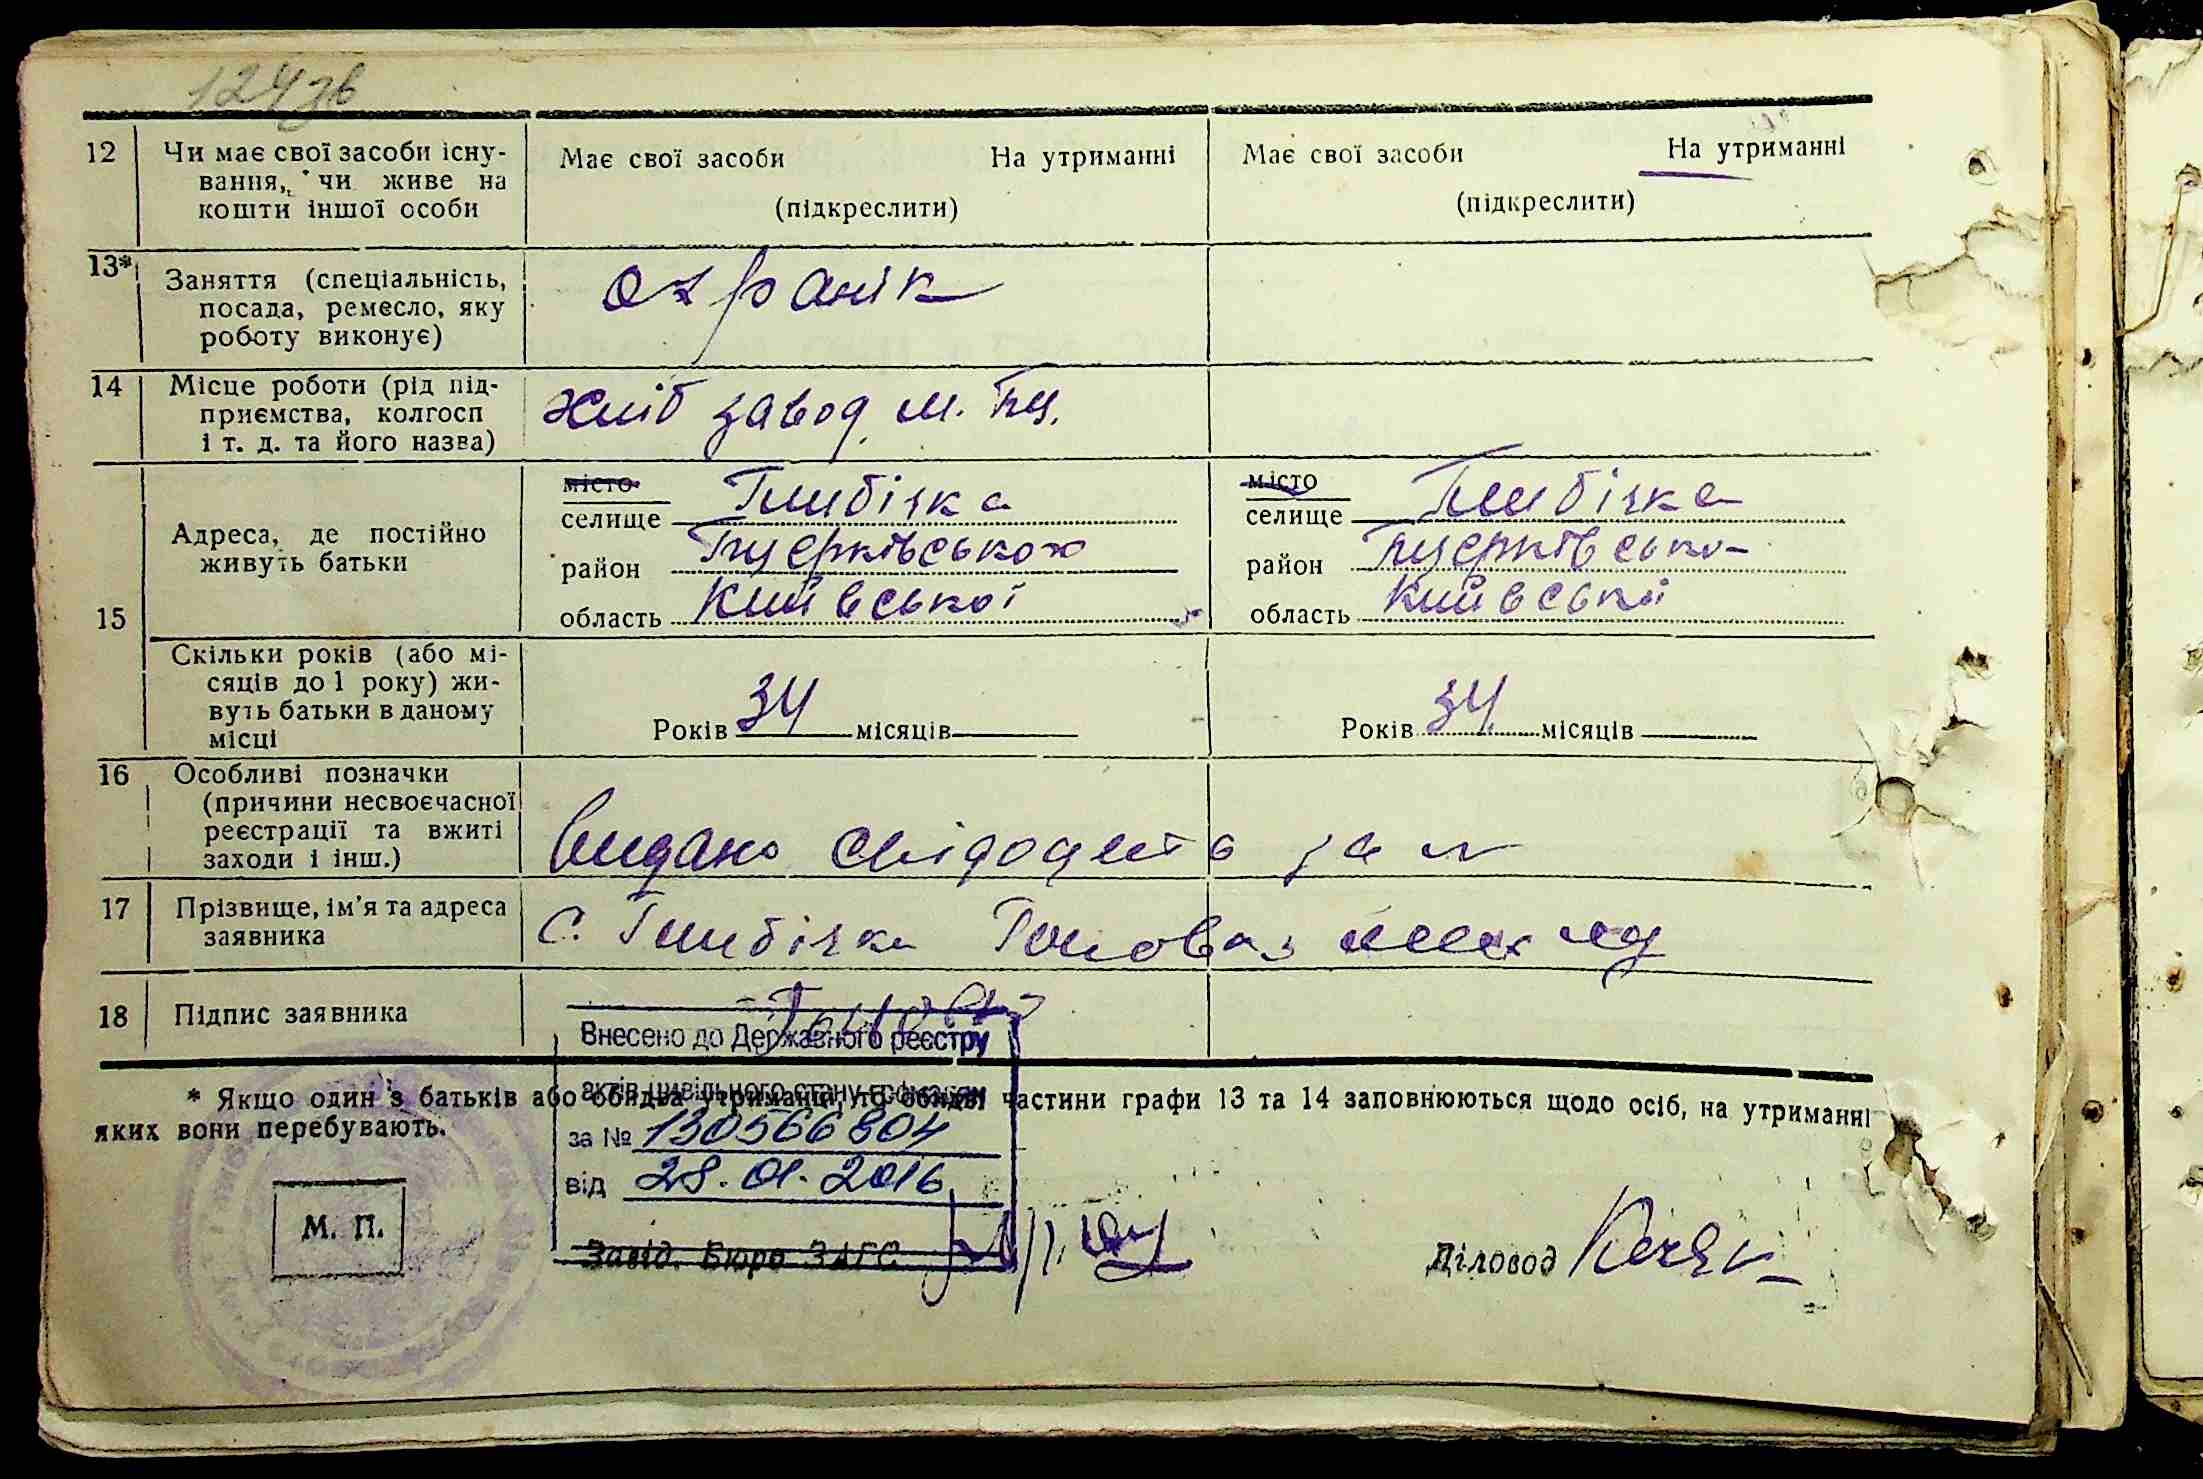 124 зв
12 Чи має свої засоби існу- Має свої засоби На утриманні Має свої засоби На утриманні
вання, чи живе на
кошти іншої особи (підкреслити) (підкреслити)
13* Заняття (спеціальність, охранік
посада, ремесло, яку
роботу виконує)
14 Місце роботи (рід під- хліб завод м. Бц.
приємства, колгосп
і т. д. та його назва)
15 Адреса, де постійно
живуть батьки
місто
селище Глибічка
район Бцерківського
область Київської
місто
селище Глибічка
район Бцерківсько-
область Київської
Скільки років (або мі-
сяців до 1 року) жи-
вуть батьки в даному
місці
Років 34 місяців
Років 34 місяців
16 Особливі позначки
(причини несвоєчасної
реєстрації та вжиті
заходи і інш.)
Видано свідоцтво за №
17 Прізвище, ім'я та адреса
заявника
с. Глибічка
18 Підпис заявника
Внесено до Державного реєстру
актів цивільного стану громадян
за № 130566804
від 28.01.2016
* Якщо один з батьків або обидва утриманці, то обидві частини графи 13 та 14 заповнюються щодо осіб, на утриманні
яких вони перебувають.
М. П.
Завід. Бюро ЗАГС
Діловод